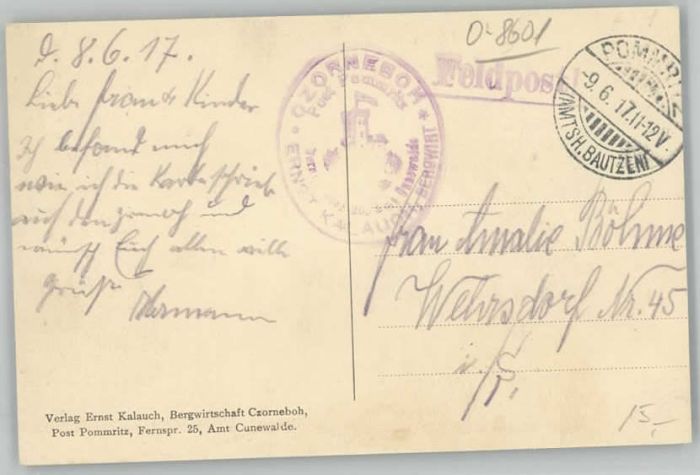 D. 8.6.17.
Liebe Frau & Kinder
Ich befand mich
wie ich die Karte schrieb
auf den
und
wünsch Euch allen viele
Grüße
Hermann
Verlag Ernst Kalauch, Bergwirtschaft Czorneboh,
Post Pommritz, Fernspr. 25, Amt Cunewalde.
CZORNEBOH
Post Pommritz
ERNST KALAUCH, BERGWIRT
Cunewalde
0-8601
Feldpost
POMMRITZ
9.6.17.11-12V.
(AMTSH. BAUTZEN)
Frau Amalie Böhme
Wehrsdorf Nr. 45
i./S.
15,-